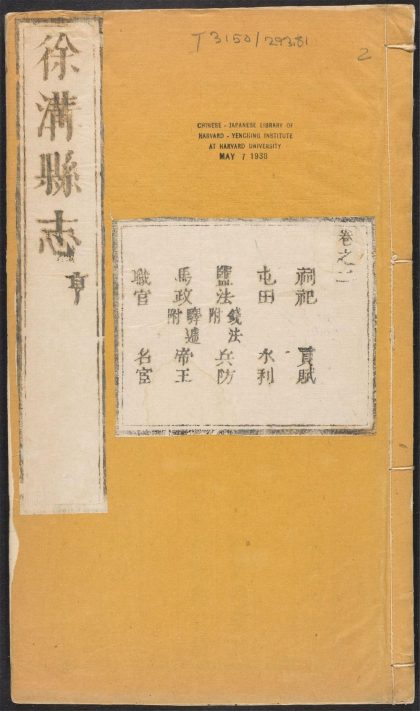 T 3150/293.81
2
CHINESE - JAPANESE LIBRARY OF
HARVARD - YENCHING INSTITUTE
AT HARVARD UNIVERSITY
MAY 7 1938
徐溝縣志
亨
卷之二
祠祀 貢賦
屯田 水利
鹽法附錢法 兵防
馬政附驛遞 帝王
職官 名宦